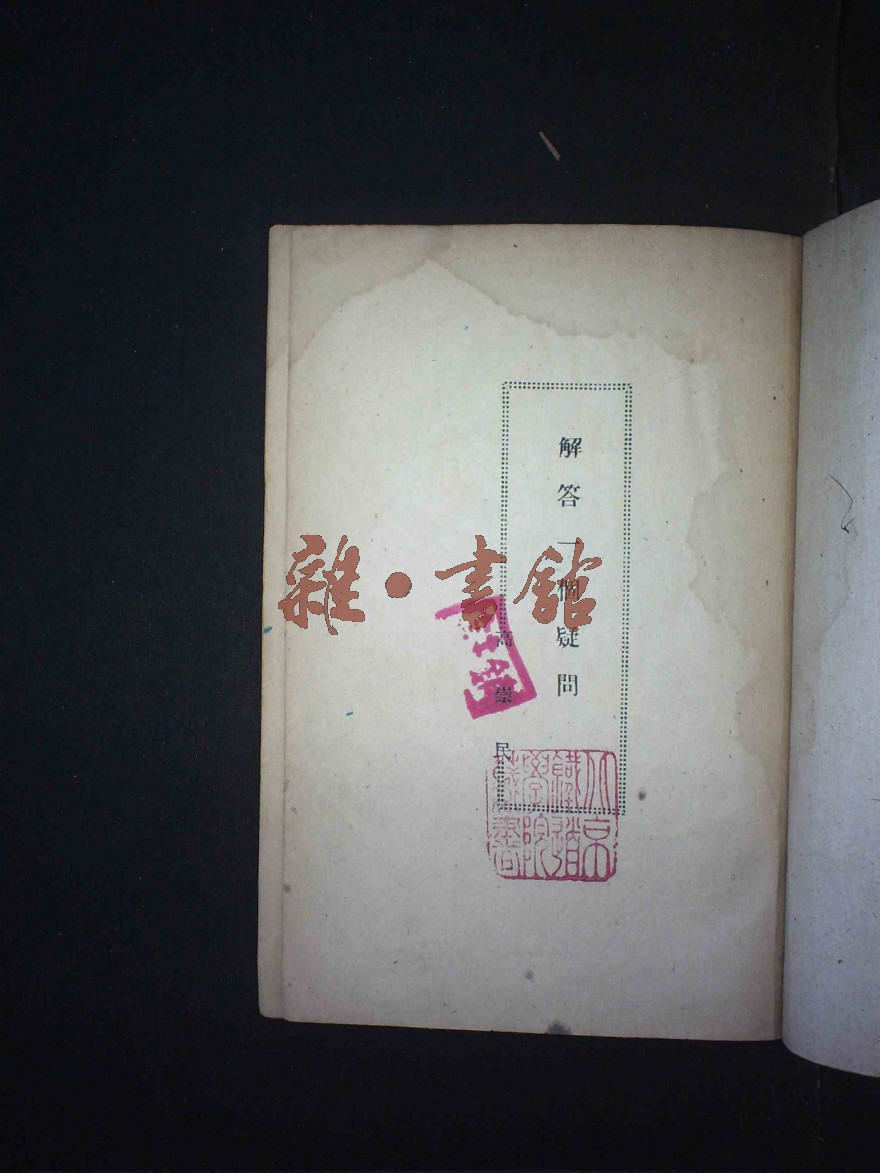 解答一個疑問
高崇民
雜·書館
北京鐵道學院藏書